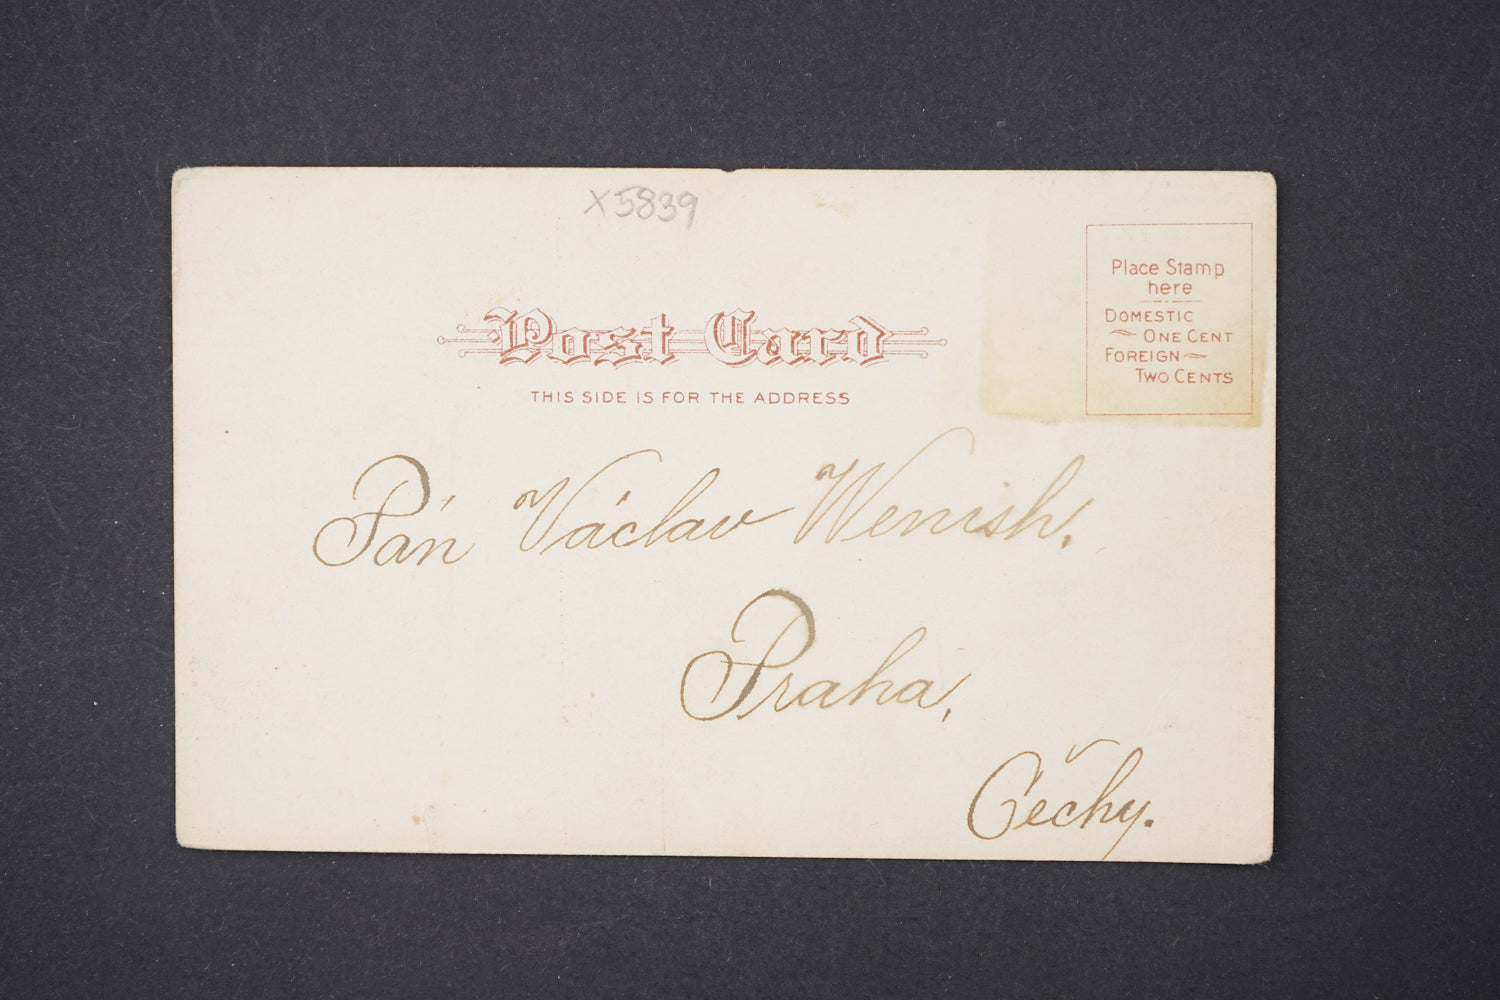 X5839
Place Stamp
here
DOMESTIC
ONE CENT
FOREIGN
TWO CENTS
Post Card
THIS SIDE IS FOR THE ADDRESS
Pán Václav Wenish.
Praha,
Čechy.